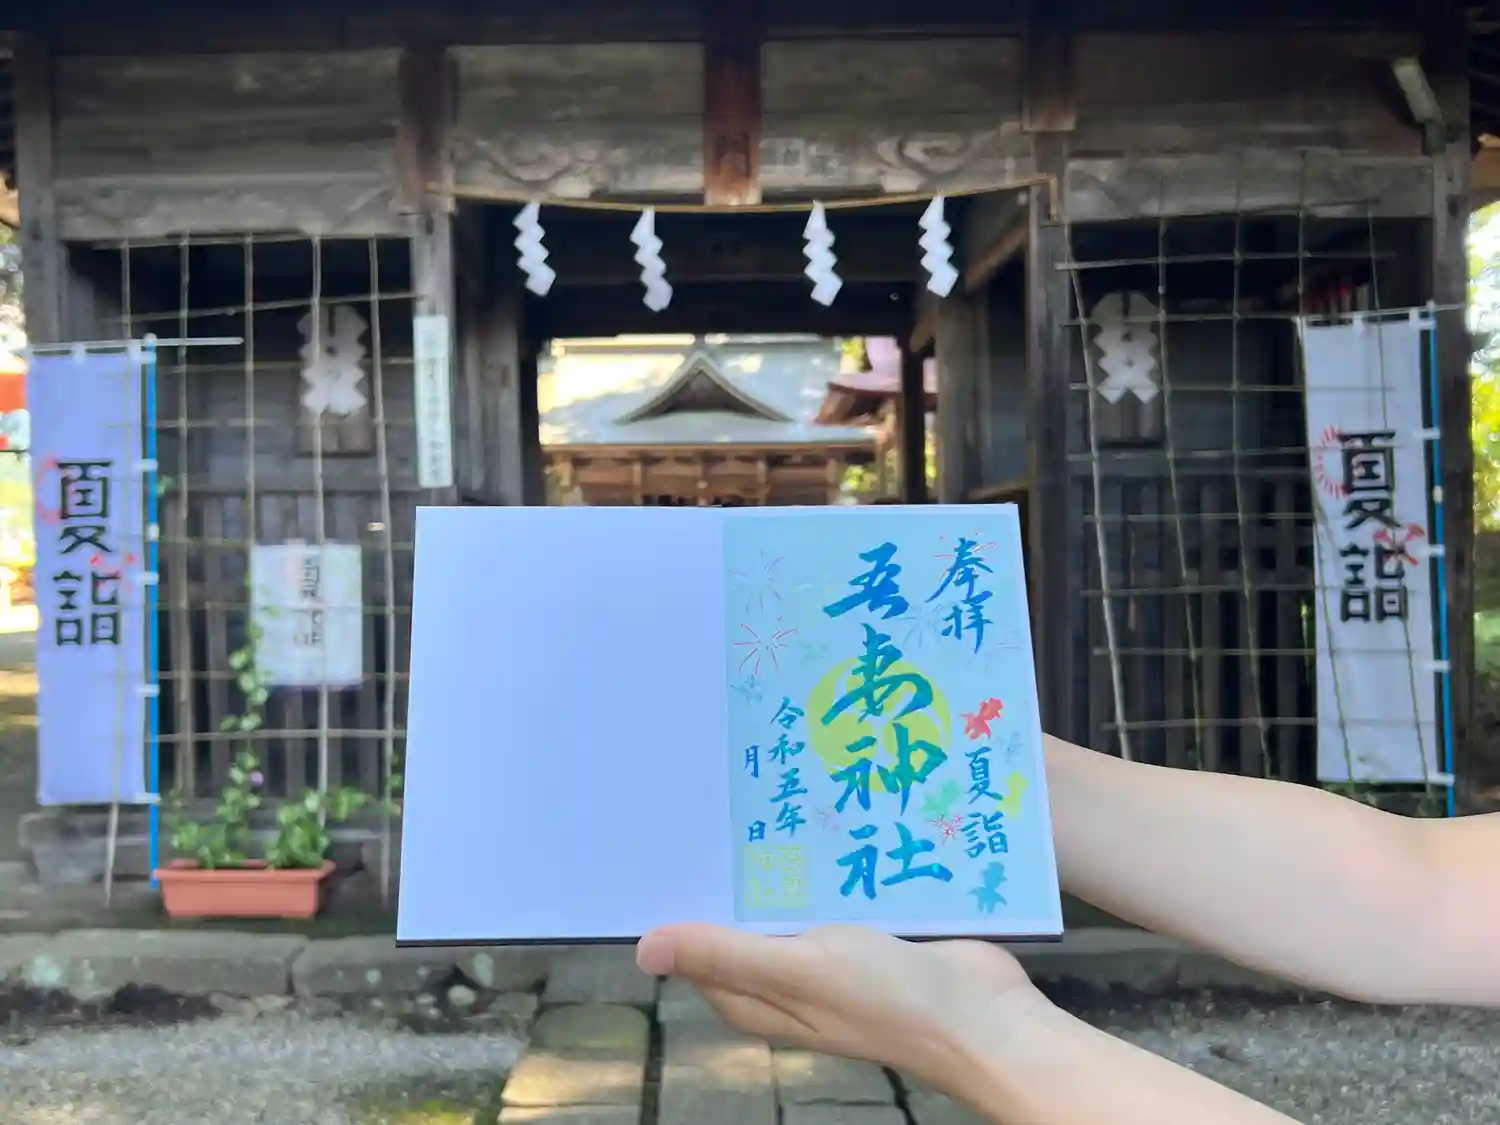 奉拝
吾妻神社
夏詣
令和五年
月 日
夏詣
夏詣
夏詣